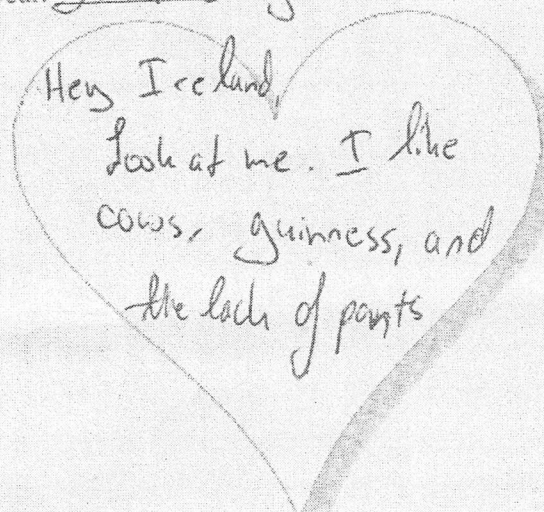 Hey Ireland,
Look at me. I like
cows, guinness, and
the lack of pants